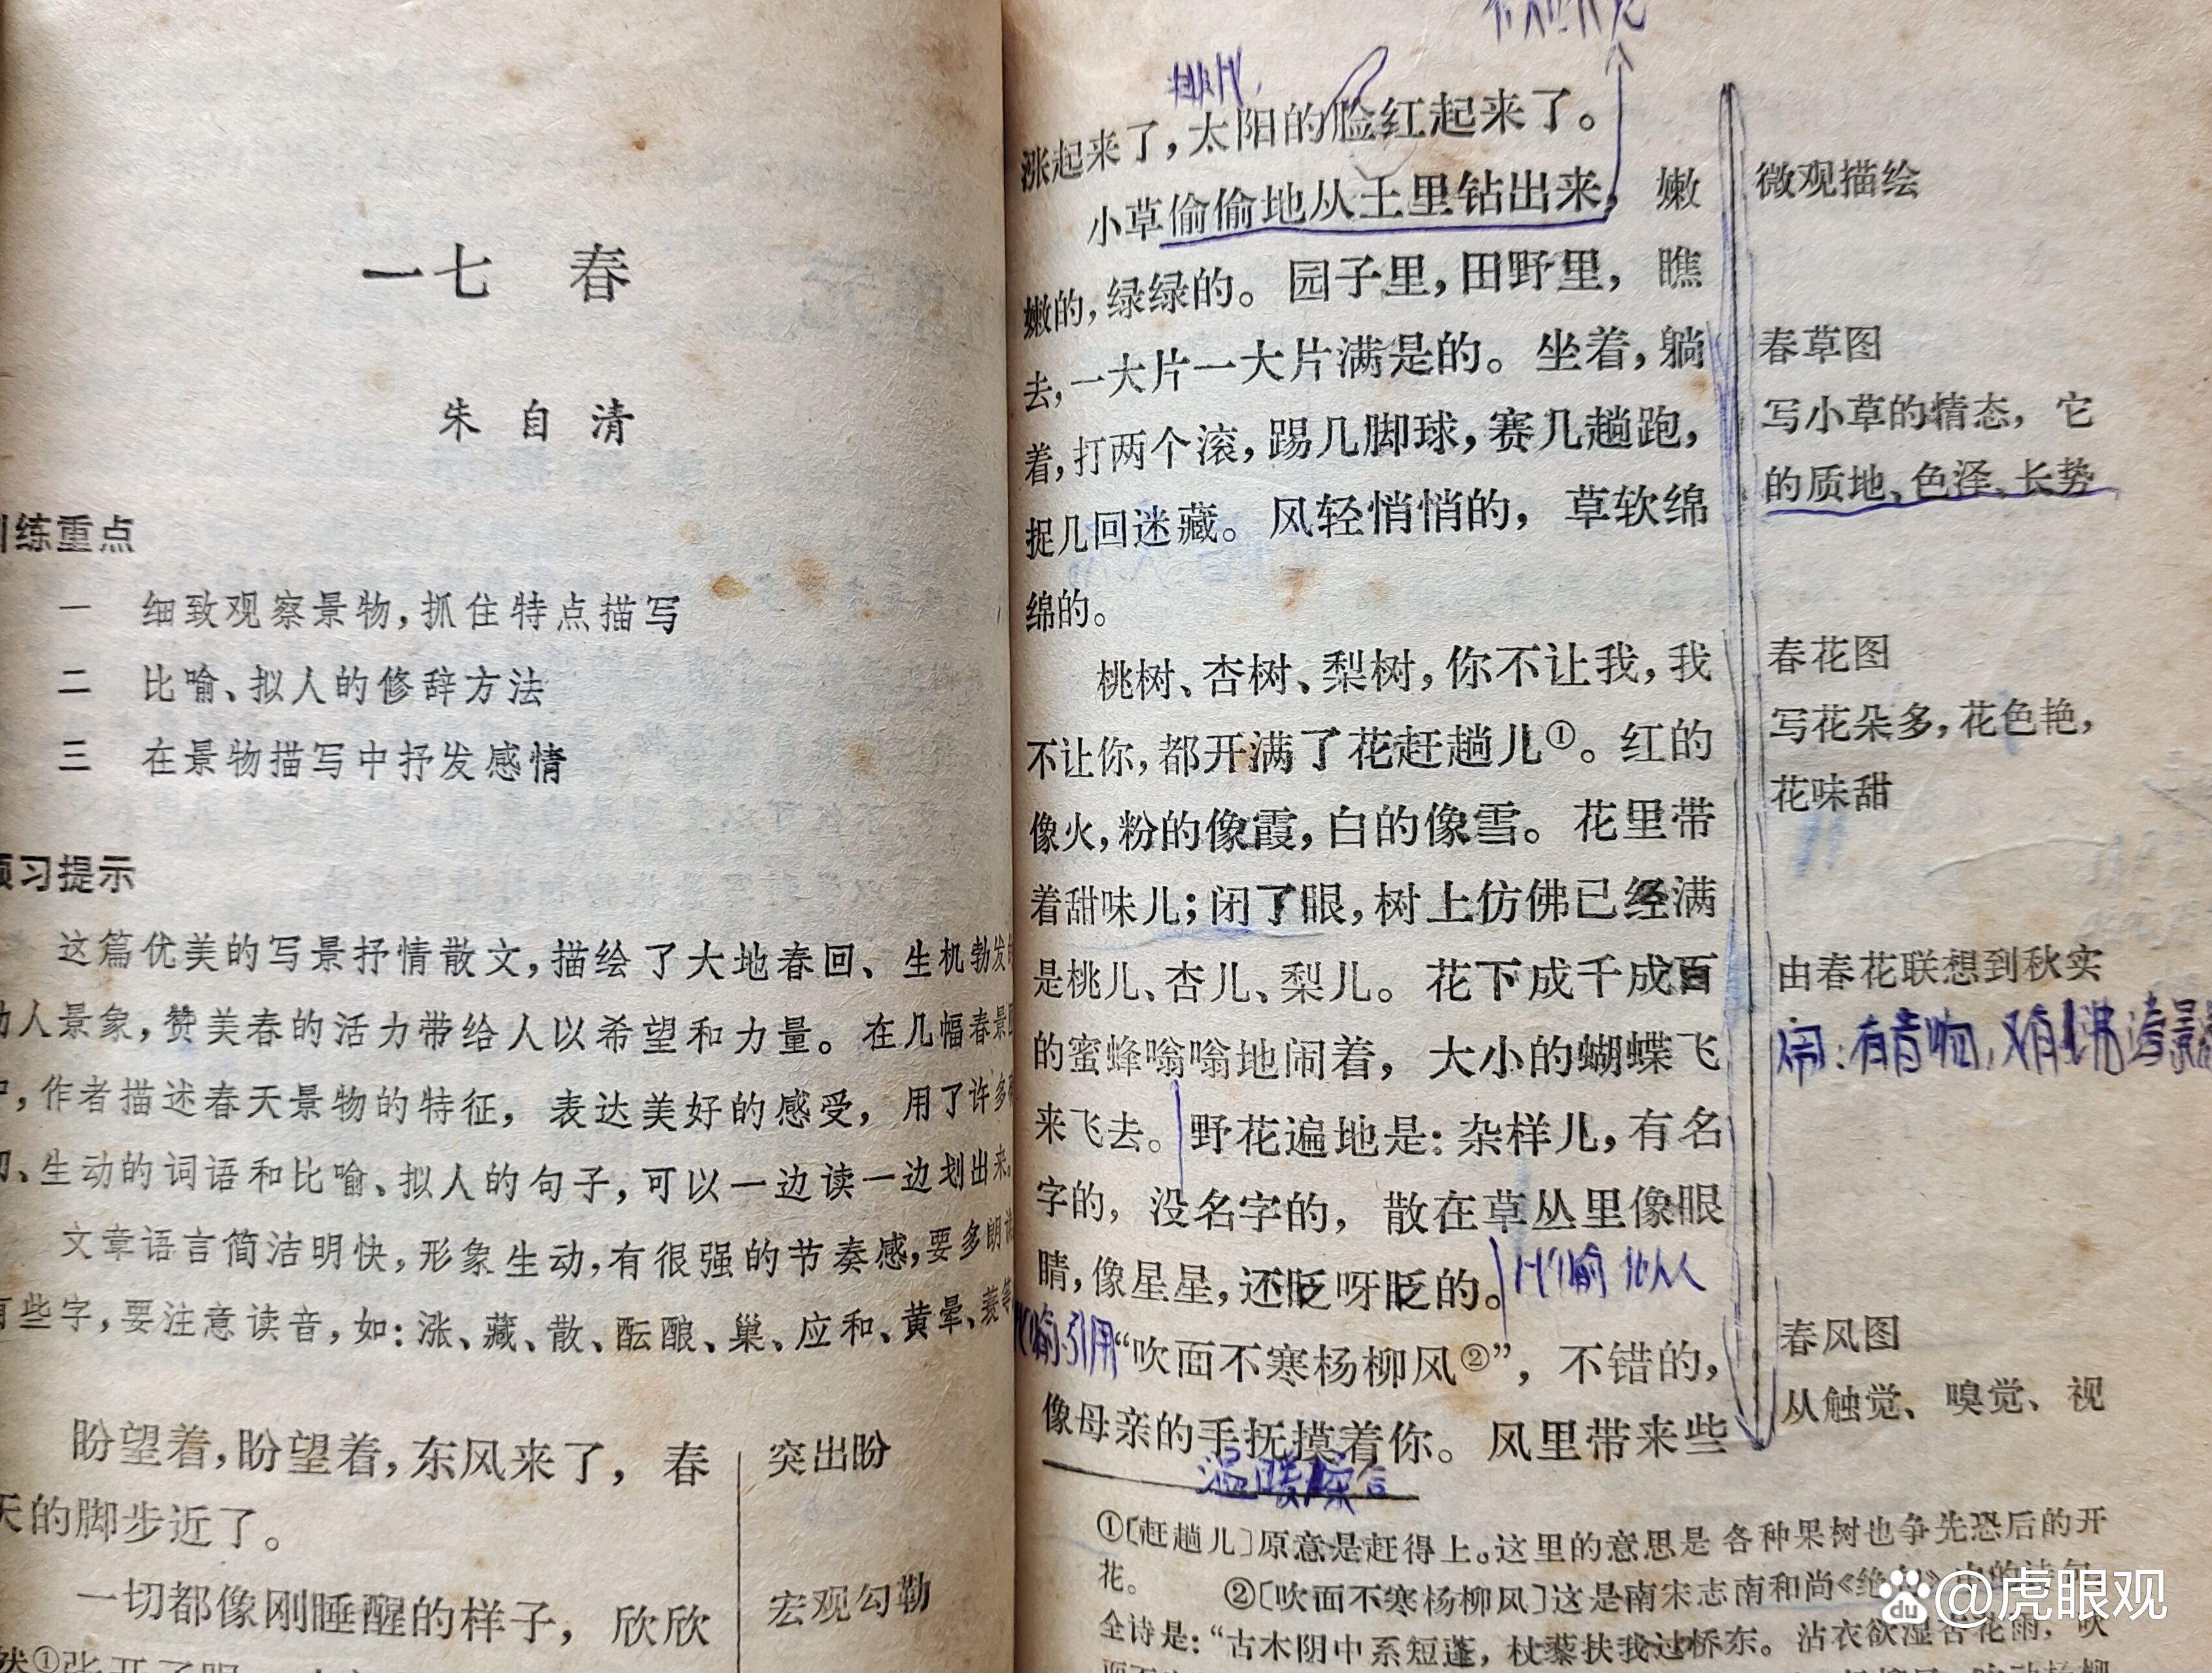 一七 春
朱自清
练重点
一 细致观察景物,抓住特点描写
二 比喻、拟人的修辞方法
三 在景物描写中抒发感情
习提示
这篇优美的写景抒情散文,描绘了大地春回、生机勃发
人景象,赞美春的活力带给人以希望和力量。在几幅春景
,作者描述春天景物的特征,表达美好的感受,用了许多
、生动的词语和比喻、拟人的句子,可以一边读一边划出来。
文章语言简洁明快,形象生动,有很强的节奏感,要多朗
有些字,要注意读音,如:涨、藏、散、酝酿、巢、应和、黄晕、蓑
盼望着,盼望着,东风来了,春
天的脚步近了。
一切都像刚睡醒的样子,欣欣
然①张开了眼
突出盼
宏观勾勒
排比
涨起来了,太阳的脸红起来了。
小草偷偷地从土里钻出来,嫩
嫩的,绿绿的。园子里,田野里,瞧
去,一大片一大片满是的。坐着,躺
着,打两个滚,踢几脚球,赛几趟跑,
捉几回迷藏。风轻悄悄的,草软绵
绵的。
桃树、杏树、梨树,你不让我,我
不让你,都开满了花赶趟儿①。红的
像火,粉的像霞,白的像雪。花里带
着甜味儿;闭了眼,树上仿佛已经满
是桃儿、杏儿、梨儿。花下成千成百
的蜜蜂嗡嗡地闹着,大小的蝴蝶飞
来飞去。野花遍地是:杂样儿,有名
字的,没名字的,散在草丛里像眼
睛,像星星,还眨呀眨的。
比喻 拟人
比喻 引用
“吹面不寒杨柳风②”,不错的,
像母亲的手抚摸着你。风里带来些
微观描绘
春草图
写小草的情态,它
的质地、色泽、长势
春花图
写花朵多,花色艳,
花味甜
由春花联想到秋实
闹:有声响,又有
春风图
从触觉、嗅觉、视
①〔赶趟儿〕原意是赶得上。这里的意思是各种果树也争先恐后的开
花。
②〔吹面不寒杨柳风〕这是南宋志南和尚《绝
全诗是:“古木阴中系短蓬,杖藜扶我过桥东。沾衣欲湿杏花雨,吹
@虎眼观